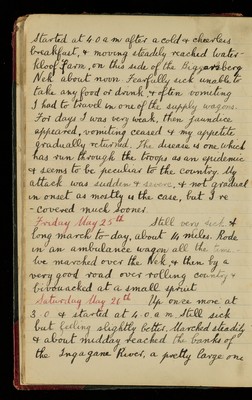 Started at 4.0 a.m after a cold & cheerless
breakfast, & moving steadily reached Water-
kloof Farm, on this side of the Biggarsberg
Nek about noon. Fearfully sick unable to
take any food or drink, & often vomiting
I had to travel in one of the supply wagons.
For days I was very weak, then jaundice
appeared, vomiting ceased & my appetite
gradually returned. The disease is one which
has run through the troops as an epidemic
& seems to be peculiar to the country. My
attack was sudden & severe, & not gradual
in onset as mostly is the case, but I re
-covered much sooner.
Friday May 25th Still very sick &
long march to-day, about 14 miles. Rode
in an ambulance wagon all the time.
We marched over the Nek, & then by a
very good road over rolling country &
bivouacked at a small spruit
Saturday May 26th Up once more at
3.0 & started at 4.0 a.m. Still sick
but feeling slightly better. Marched steadily
& about midday reached the banks of
the Ingagane River, a pretty large one